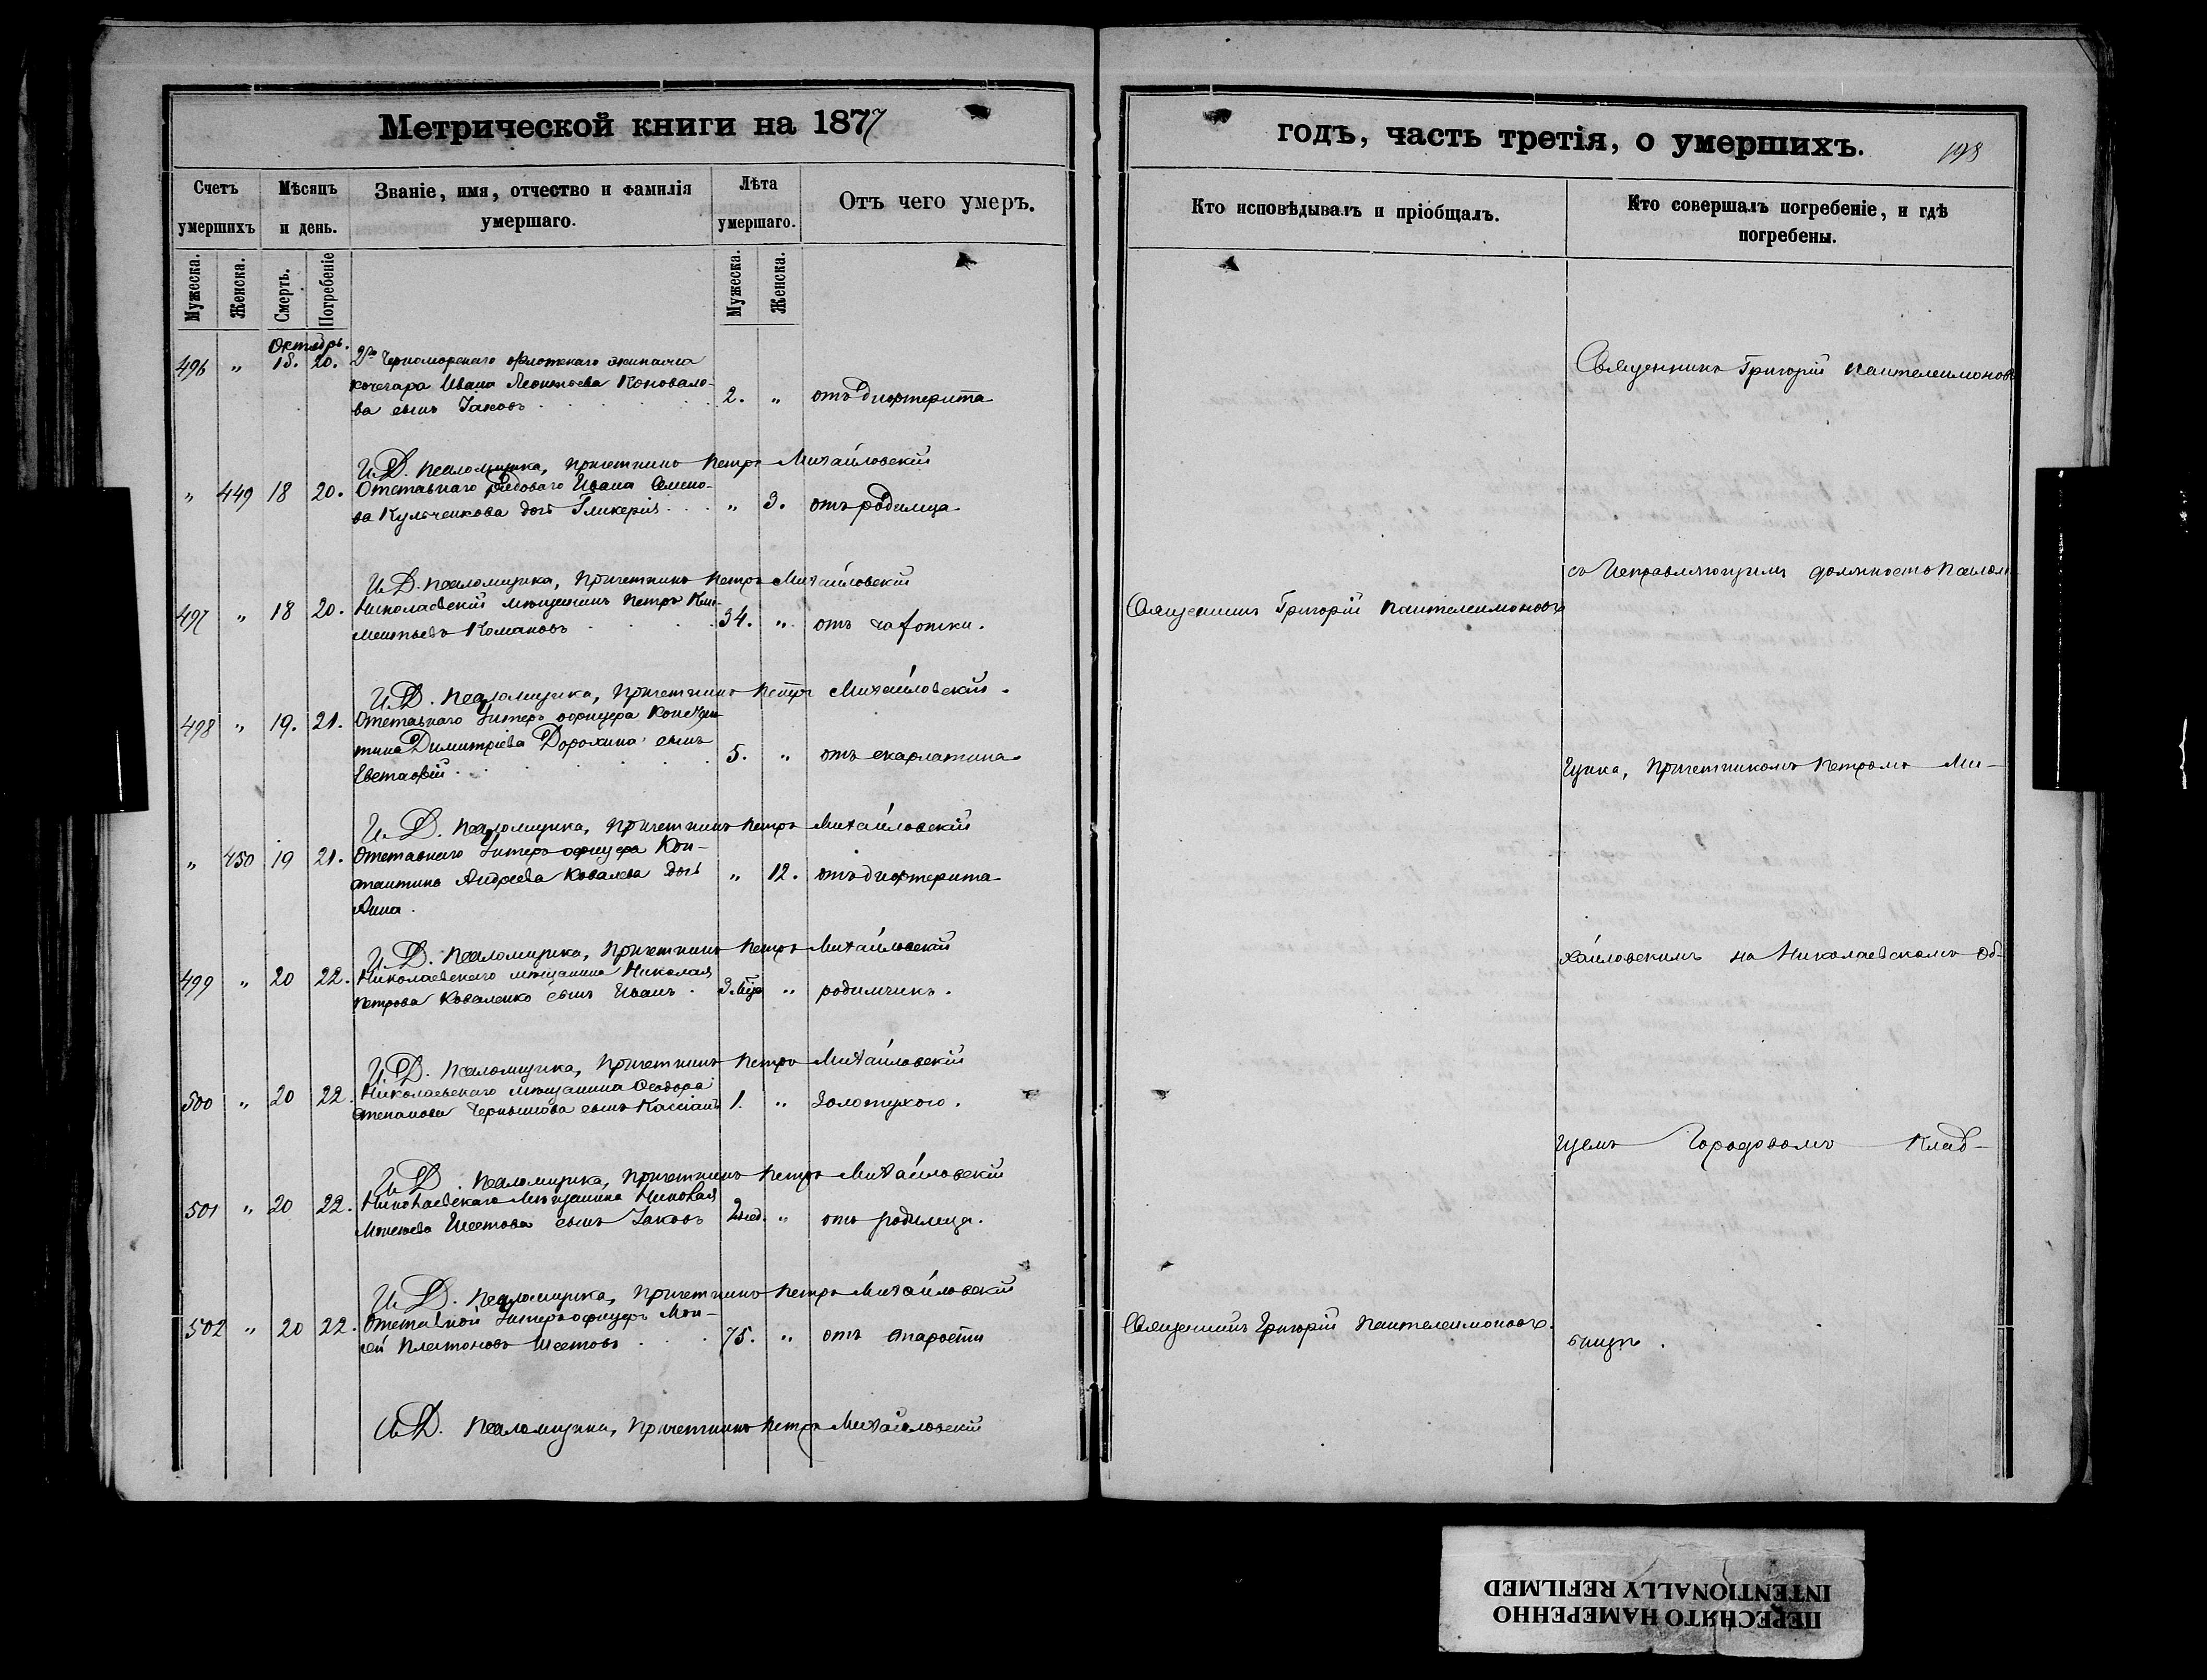 Метрической книги на 1877
Счетъ умершихъ
Мѣсяцъ и день.
Званіе, имя, отчество и фамилія умершаго.
Лѣта умершаго.
Отъ чего умеръ.
Мужеска.
Женска.
Смерть.
Погребеніе
Мужеска.
Женска.
Октябрь.
496 " 18. 20. 2го Черноморскаго флотскаго экипажа
кочегара Ивана Леонтьева Коновало-
ва сынъ Іаковъ 2. " отъ дифтерита
И. Д. Псаломщика, Причетникъ Петръ Михайловскій
" 449 18 20. Отставнаго рядоваго Ивана Семено-
ва Кульченкова дочь Гликерія " 3. отъ родимца.
И. Д. Псаломщика, Причетникъ Петръ Михайловскій
497 " 18 20. Николаевскій мѣщанинъ Петръ Кли-
ментьевъ Комановъ 34. " отъ чахотки.
И. Д. Псаломщика, Причетникъ Петръ Михайловскій.
498 " 19. 21. Отставнаго Унтеръ офицера Констан-
тина Димитріева Дорохина сынъ
Евстафій. 5. " отъ скарлатина.
И. Д. Псаломщика, Причетникъ Петръ Михайловскій
" 450 19 21. Отставнаго Унтеръ-офицера Кон-
стантина Андреева Ковалева дочь
Анна. " 12. отъ дифтерита
И. Д. Псаломщика, Причетникъ Петръ Михайловскій
499 " 20 22. Николаевскаго мѣщанина Николая
Петрова Коваленко сынъ Иванъ. 3 мѣс " родимчикъ.
И. Д. Псаломщика, Причетникъ Петръ Михайловскій
500 " 20 22. Николаевскаго мѣщанина Ѳеодора
Степанова Чернышова сынъ Кассіанъ 1. " Золотухою.
И. Д. Псаломщика, Причетникъ Петръ Михайловскій
501 " 20 22. Николаевскаго Мѣщанина Николая
Моисеева Шестова сынъ Іаковъ 2 нед. " отъ родимца.
И. Д. Псаломщика, Причетникъ Петръ Михайловскій
502 " 20 22. Отставной Унтеръ-офицеръ Мои-
сей Платоновъ Шестовъ 75. " отъ старости
И. Д. Псаломщика, Причетникъ Петръ Михайловскій
годъ, часть третія, о умершихъ.
198
Кто исповѣдывалъ и пріобщалъ.
Кто совершалъ погребеніе, и гдѣ погребены.
Священникъ Григорій Пантелеимоновъ
Священникъ Григорій Пантелеимоновъ.
Священникъ Григорій Пантелеимоновъ
съ Исправляющимъ должность Псалом-
щика, Причетникомъ Петромъ Ми-
хайловскимъ на Николаевскомъ об-
щемъ Городовомъ Клад-
бищѣ.
ПЕРЕСНЯТО НАМЕРЕННО
INTENTIONALLY REFILMED